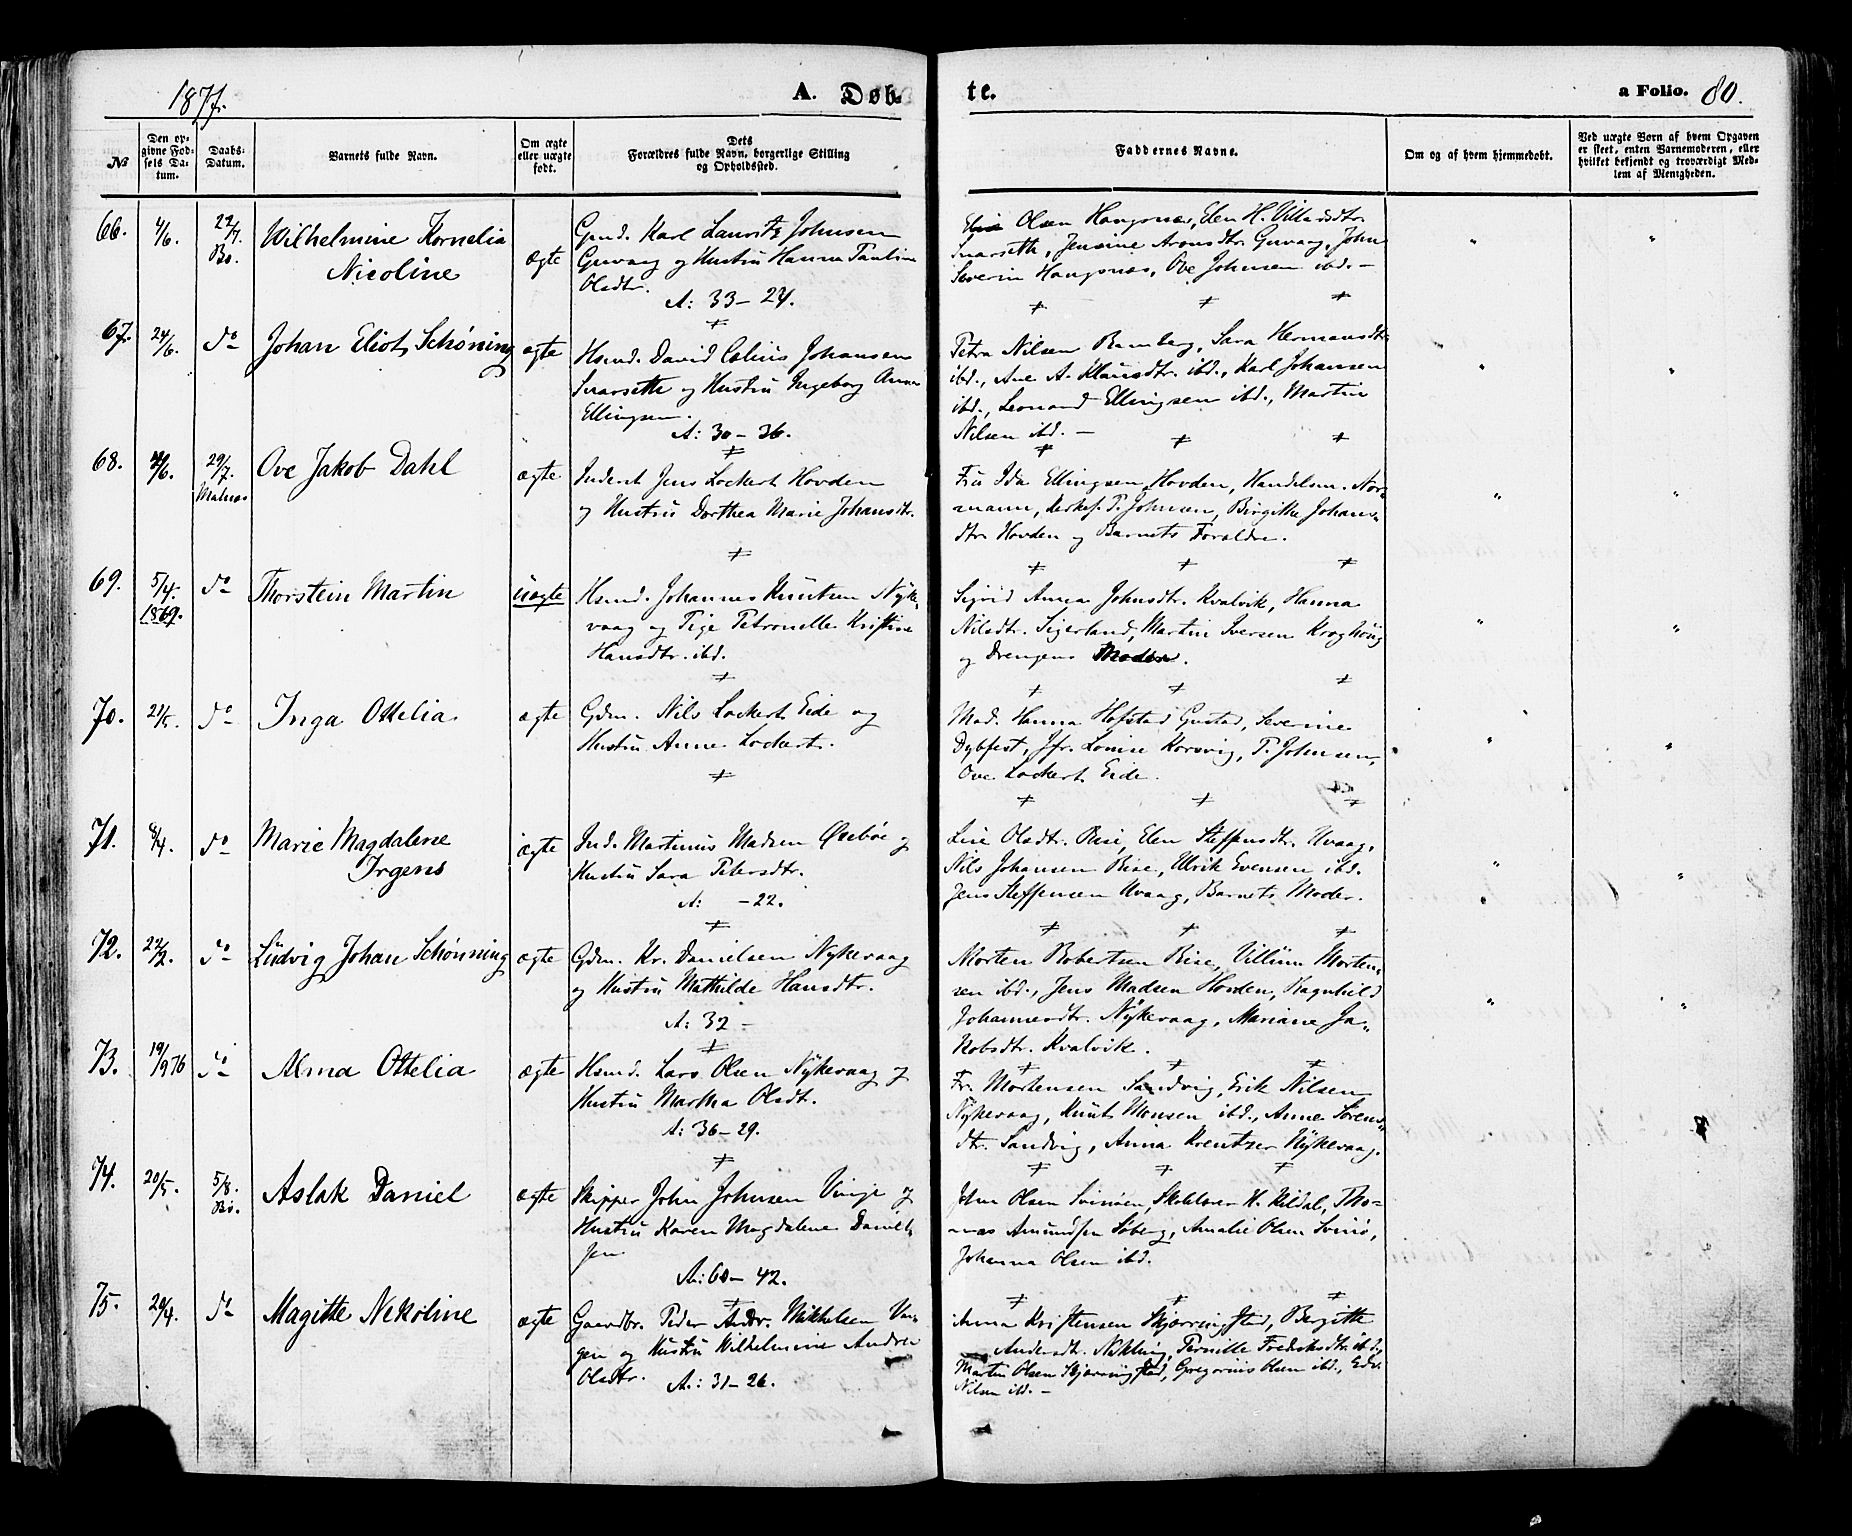 1877.
A. Døb-
te.
a Folio. 80.
No
Den op-
givne Fød-
sels Da-
tum.
Daabs-
Datum.
Barnets fulde Navn.
Om ægte
eller uægte
født.
Dets
Forældres fulde Navn, borgerlige Stilling
og Opholdssted.
Faddernes Navne.
Om og af hvem hjemmedøbt.
Ved uægte Børn af hvem Opgaven
er skeet, enten Barnemoderen, eller
hvilket bekjendt og troværdigt Med-
lem af Menigheden.
66. 4/6. 22/7. Bø.
Wilhelmine Kornelia
Nicoline
ægte
Gmd. Karl Lauritz Johnsen
Guvaag og Hustru Hanna Paulina
Olsdtr.
A: 33 – 24.
Olsen Haugsnæs, Elen H. Villadsdtr.
Snarseth, Jensine Aronsdtr. Guvaag, John
Severin Haugsnæs, Ove Johnsen ibd. –
67. 24/6. do
Johan Eliot Schøning
ægte
Hsmd. David Johansen
Snarseth og Hustru Ingeborg Anna
Ellingsen.
A: 30 – 36.
Petra Nilsen Ramberg, Sara Hermansdtr.
ibd., Ane A. Klausdtr. ibd., Karl Johansen
ibd., Leonard Ellingsen ibd., Martin
Nilsen ibd. –
68. 29/7. Malnæs
Ove Jakob Dahl
ægte
Inderst Jens Lockert Hovden
og Hustru Dorthea Marie Johansdtr.
Fru Ida Ellingsen Hovden, Handelsm. Nor-
mann, P. Johnsen, Birgitte Johans-
dtr. Hovden og Barnets Forældre.
69. 5/4. 1869. do
Thorstein Martin
uægte
Hsmd. Johannes Knutsen Nyke-
vaag og Pige Petronelle Kristine
Hansdtr. ibd.
Sigrid Anna Johnsdtr. Kvalvik, Hanna
Nilsdtr. Sigerland, Martin Iversen
og Drengens Moder.
70. 21/5. do
Inga Ottelia
ægte
Gdm. Nils Lockert Eide og
Hustru Anne Lockert.
Mad. Hanna Hofstad Gustad, Severine
Dybfest, Jfr. Lovise Korsvig, P. Johnsen,
Ove Lockert Eide.
71. 8/4. do
Marie Magdalene
Irgens
ægte
Ind. Martinus Madsen og
Hustru Sara Petersdtr.
A: – 22.
Lise Olsdtr. Rise, Elen Steffensdtr. Uvaag,
Nils Johansen Rise, Ulrik Evensen ibd.
Jens Steffensen Uvaag, Barnets Moder.
72. 22/2. do
Ludvig Johan Schønning
ægte
Gdm. Kr. Danielsen Nykevaag
og Hustru Mathilde Hansdtr.
A: 32 –
Morten Robertsen Rise, Villum Morten-
sen ibd., Jens Madsen Hovden, Ragnhild
Johannesdtr. Nykevaag, Mariane Ja-
kobsdtr. Kvalvik.
73. 19/9 76 do
Alma Ottelia
ægte
Hsmd. Lars Olsen Nykevaag og
Hustru Martha Olsdt.
A: 36 – 29.
Fr. Mortensen Sandvig, Erik Nilsen
Nykevaag, Knut Monsen ibd., Anne Sørens-
dtr. Sandvig, Anna Kreutzer Nykevaag.
74. 20/5. 5/8. Bø.
Aslak Daniel
ægte
Skipper John Johnsen Vinje og
Hustru Karen Magdalene Daniel-
sen
A: 60 – 42.
John Olsen Svinøen, Skolelærer H. Kildal, Tho-
mas Amundsen Søberg, Amalie Olsen Svinø,
Johanna Olsen ibd.
75. 29/4. do
Magitte Nekoline
ægte
Gaardbr. Peder Andr. Mikkelsen Vin-
gen og Hustru Wilhelmine Andrea
Olsdtr.
A: 31 – 26.
Anna Kristensen Skjærringstad, Bergitte
Andersdt. Nykling, Pernille Fredriksdtr. ibd.,
Martin Olsen Skjærringstad, Gregorius Olsen ibd., Edv.
Nilsen ibd. –